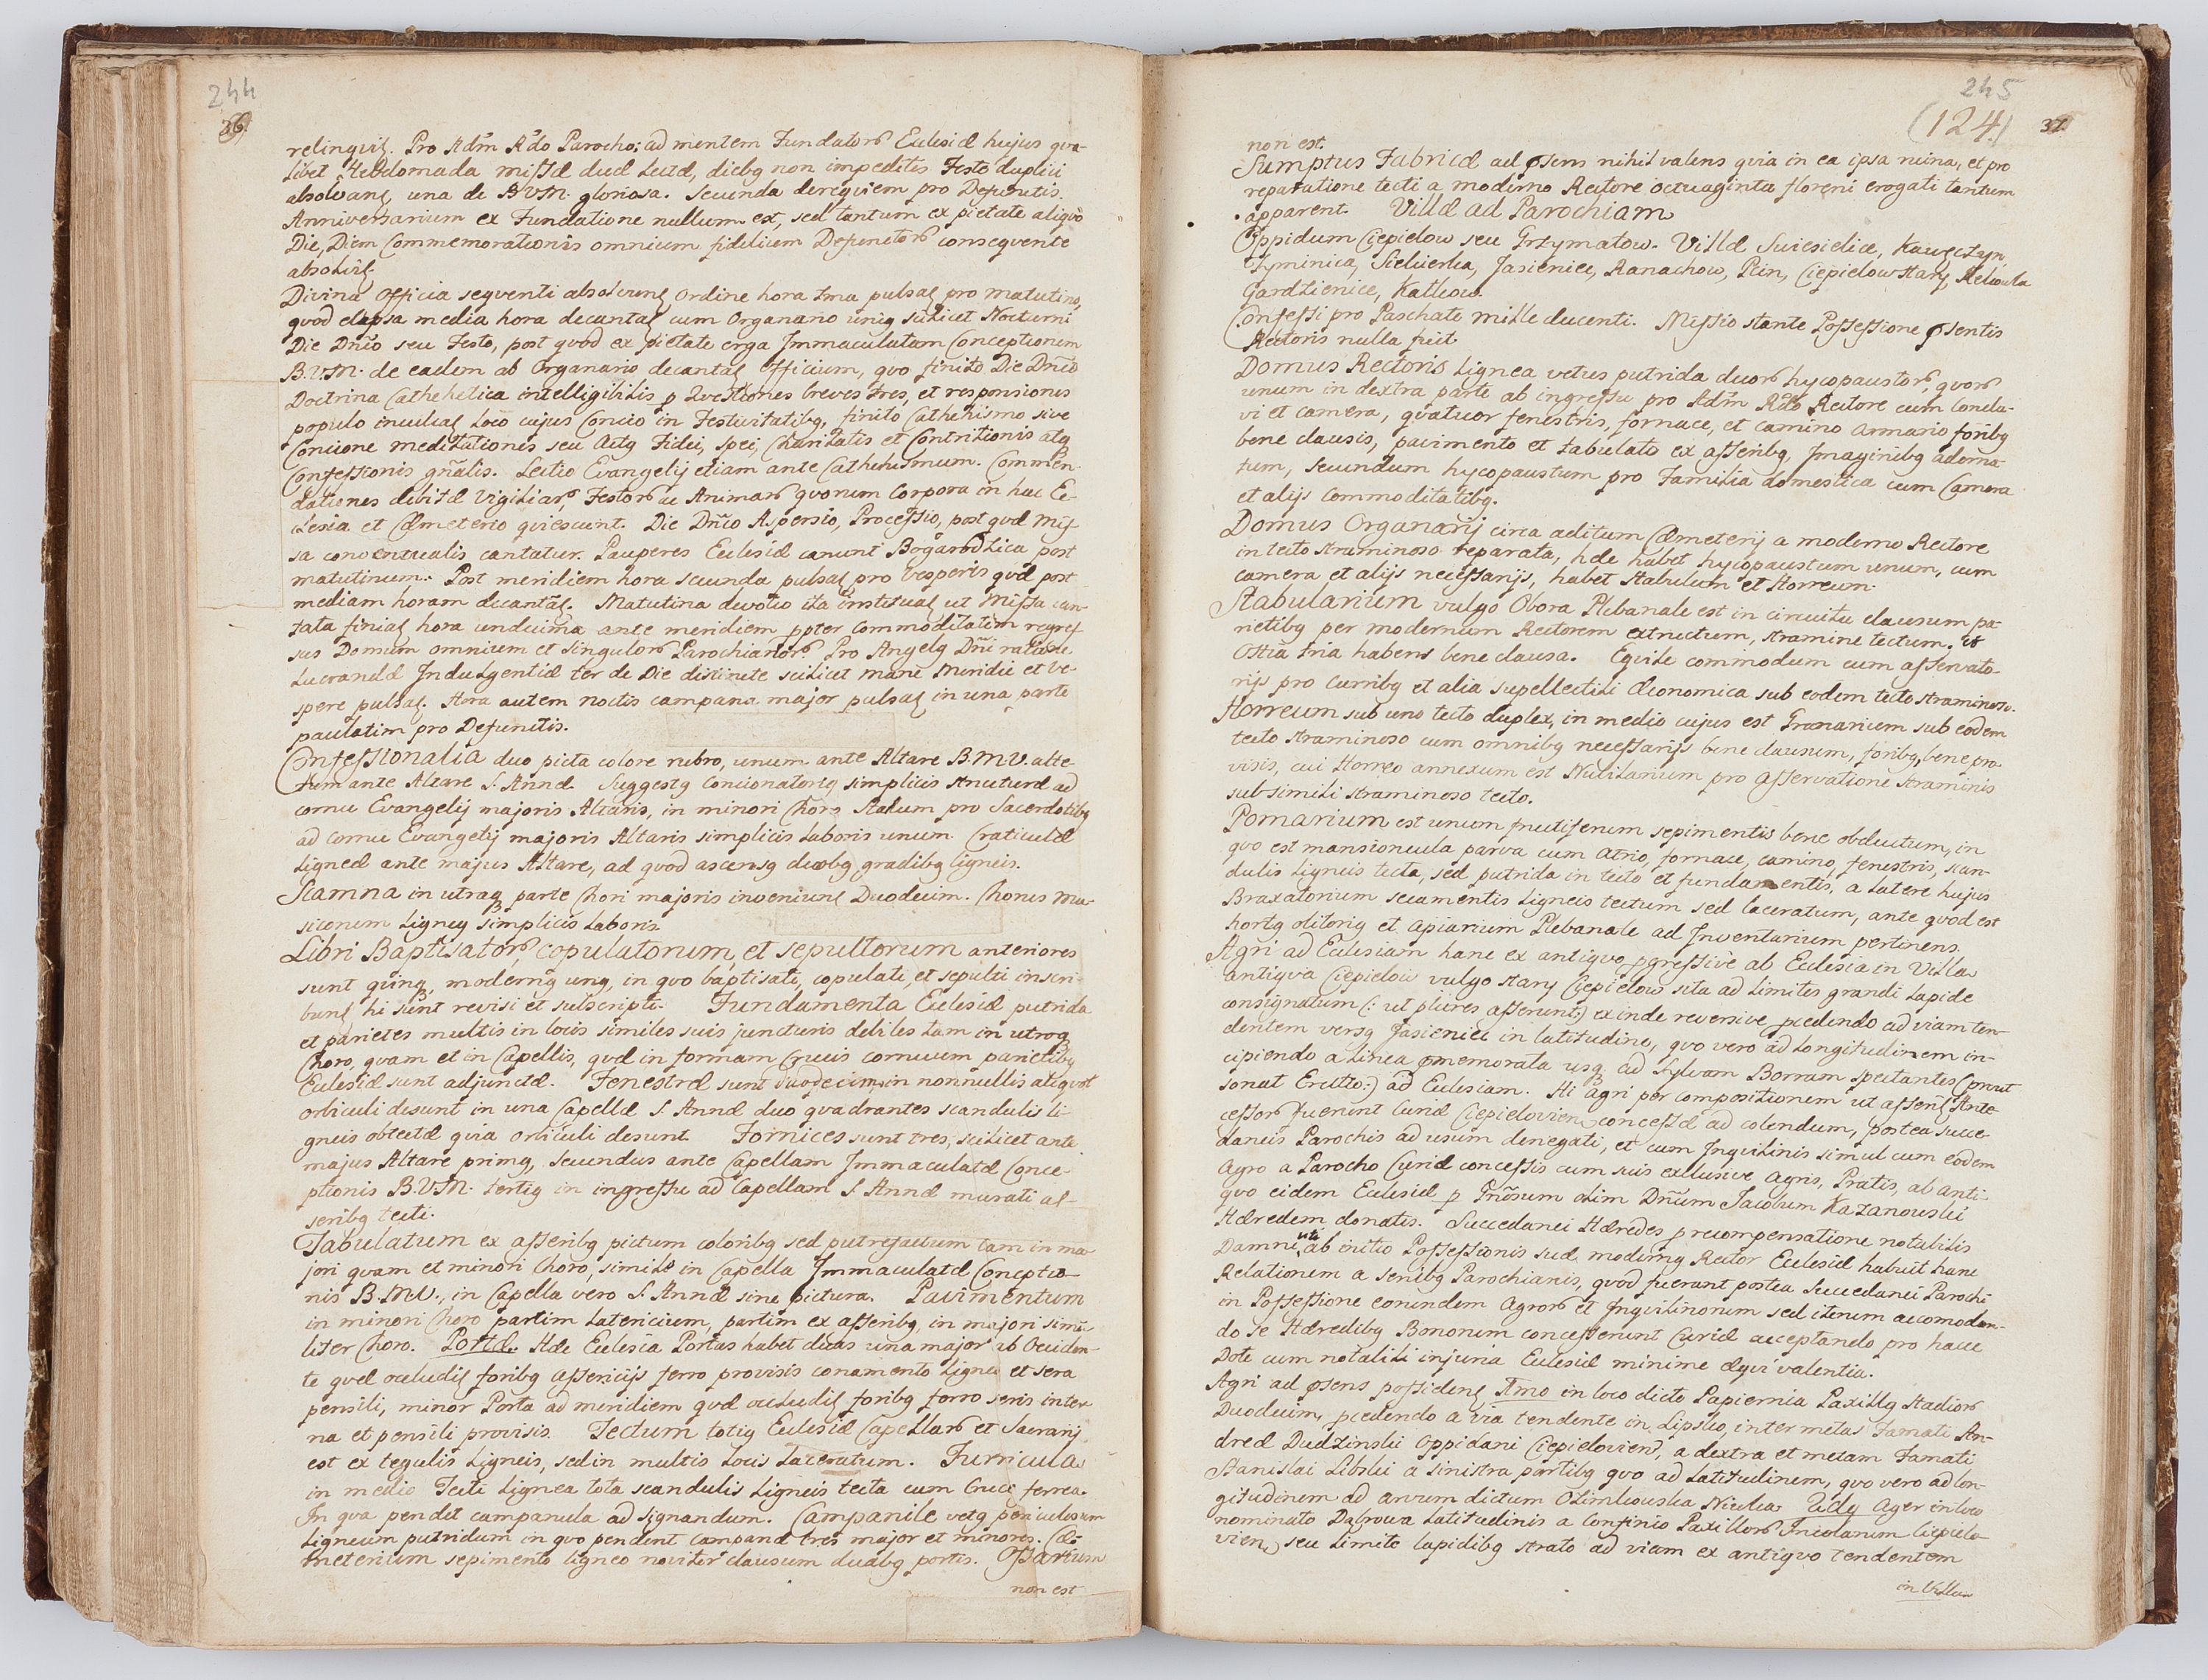 244
36.
relinquit. Pro Adm Rdo Parocho: ad mentem Fundatorũ Ecclesiæ hujus qua-
libet Hebdomada missæ duæ Lectæ, diebq non impeditis Festo duplici
absolvant, una de BVM. gloriosa. Secunda de requiem pro Defunctis.
Anniversarium ex Fundatione nullum est, sed tantum ex pietate aliquo
Die, Diem Commemorationis omnium fidelium Defunctorũ consequente
absolvit.
Divina Officia sequenti absolvunt ordine hora Ima pulsat pro matutino,
quod elapsa media hora decantat cum Organario uniq scilicet Nocturni
Die Dnico seu Festo, post quod ex pietate erga Immaculatam Conceptionem
B.V.M. de eadem ab Organario decantat Officium, quo finito Die Dnico
Doctrina Cathehetica intelligibilis p Questiones breves tres, et responsiones
populo inculcat Loco cujus Concio in Festivitatibq, finito Cathehismo sive
Concione meditationes seu Actq Fidei, Spei, Charitatis et Contritionis atq
Confessionis gñalis. Lectio Evangelij etiam ante Cathehismum. Commen-
dationes debitæ Vigiliarũ, Festorũ ac Animarũ quorum Corpora in hac Ec-
clesia et Cæmeterio quiescunt. Die Dnico Aspersio, Processio, post quæ Mis-
sa conventualis cantatur. Pauperes Ecclesiæ canunt Bogarodzica post
matutinum. Post meridiem hora secunda pulsat pro vesperis quæ post
mediam horam decantat. Matutina devotio ita instituat ut Missa can-
tata finiat hora undecima ante meridiem ppter commoditatem regres-
sus Domum omnium et singulorũ Parochianorũ. Pro Angelq Dñi ratione
Lucrandæ Indulgentiæ ter de Die distincte scilicet mane Meridie et ve-
spere pulsat. Hora autem noctis campana major pulsat in una parte
paulatim pro Defunctis.
Confessionalia duo picta colore rubro, unum ante Altare B.M.V. alte-
rum ante Altare S. Annæ. Suggestq Concionatoriq simplicis structuræ ad
cornu Evangelij majoris Altaris, in minori Choro Stallum pro Sacerdotibq
ad cornu Evangelij majoris Altaris simplicis Laboris unum. Craticulæ
Ligneæ ante majus Altare, ad quod ascensq duobq gradibq ligneis.
Scamna in utraq parte Chori majoris inveniunt Duodecim. Chorus Mu-
sicorum Ligneq simplicis Laboris.
Libri Baptisatorũ, copulatorum, et sepultorum anteriores
sunt quinq, modernq unq, in quo baptisati, copulati, et sepulti inscri-
bunt hi sunt revisi et subscripti. Fundamenta Ecclesiæ putrida
et parietes multis in locis similes suis juncturis debiles tam in utroq
Choro, quam et in Capellis, quæ in formam Crucis cornuum parietibq
Ecclesiæ sunt adjunctæ. Fenestræ sunt duodecim in nonnullis aliquot
orbiculi desunt in una Capellæ S. Annæ duo quadrantes scandulis li-
gneis obtectæ quia orbiculi desunt. Fornices sunt tres, scilicet ante
majus Altare primq, secundus ante Capellam Immaculatæ Conce-
ptionis B.V.M. tertiq in ingressu ad Capellam S. Annæ murati as-
seribq tecti.
Tabulatum ex asseribq pictum coloribq sed putrefactum tam in ma-
jori quam et minori Choro, simile in Capella Immaculatæ Conceptio-
nis B.M.V., in Capella vero S. Annæ sine pictura. Pavimentum
in minori Choro partim Latericium, partim ex asseribq, in majori simi-
liter Choro. Portæ. Hæc Ecclesia Portas habet duas una major ab Occiden-
te quæ occludit foribq assericijs ferro provisis conamento Ligneo et sera
pensili, minor Porta ad meridiem quæ occludit foribq ferro seris inter-
na et pensili provisis. Tectum totiq Ecclesiæ Capellarũ et Sacrarij
est ex tegulis Ligneis, sed in multis Locis Laceratum. Turricula
in medio Tecti Lignea tota scandulis Ligneis tecta cum Cruce ferrea.
In qua pendet campanula ad signandum. Campanile vetq periculosum
Ligneum putridum in quo pendent campanæ tres major et minores. Cæ-
meterium sepimento ligneo noviter clausum duabq portis. Ossarium
non est
245
(124)
37.
non est.
Sumptus Fabricæ ad psens nihil valens quia in ea ipsa ruina, et pro
reparatione tecti a moderno Rectore octuaginta floreni erogati tantum
apparent. Villæ ad Parochiam
Oppidum Ciepielow seu Grzymałow. Villæ Swiesielice, Kawęczyn,
Czyminica, Siekierka, Jasieniec, Ranachow, Pcin, Ciepielow stary, Rekowka
Gardzienice, Kałkow.
Confessi pro Paschate mille ducenti. Missio stante Possessione psentis
Rectoris nulla fuit.
Domus Rectoris Lignea vetus putrida duorũ hypocaustorũ, quorũ
unum in dextra parte ab ingressu pro Adm Rdo Rectore cum Concla-
vi et camera, quatuor fenestris, fornace, et camino Armario foribq
bene clausis, pavimento et tabulato ex asseribq, Imaginibq adorna-
tum, secundum hycopaustum pro Familia domestica cum Camera
et alijs commoditatibq.
Domus Organarij circa aditum Cæmeterij a moderno Rectore
in tecto straminoso reparata, hæc habet hycopaustum unum, cum
camera et alijs necessarijs, habet Stabulum et Horreum.
Stabularium vulgo Obora Plebanale est in circuitu clausum pa-
rietibq per modernum Rectorem extructum, stramine tectum,
Ostia tria habens bene clausa. Equile commodum cum asservato-
rijs pro curribq et alia supellectili Œconomica sub eodem tecto straminoso.
Horreum sub uno tecto duplex, in medio cujus est Granarium sub eodem
tecto straminoso cum omnibq necessarijs bene clausum, foribq, bene pro-
visis, cui Horreo annexum est Nutitarium pro asservatione straminis
sub simili straminoso tecto.
Pomarium est unum fructiferum sepimentis bene obductum, in
quo est mansioncula parva cum Atrio, fornace, camino, fenestris, scan-
dulis Ligneis tecta, sed putrida in tecto et fundamentis, a Latere hujus
Braxatorium secamentis Ligneis tectum sed laceratum, ante quod est
hortq olitoriq et apiarium Plebanale ad Inventarium pertinens.
Agri ad Ecclesiam hanc ex antiquo pgressive ab Ecclesia in Villa
antiqva Ciepielow vulgo stary Ciepielow sita ad Limites grandi Lapide
consignatum (: ut plures asserunt:) exinde reversive pcedendo ad viam ten-
dentem versq Jasieniec in latitudine, quo vero ad Longitudinem in-
cipiendo a Linea pmemorata usq ad Sylvam Borram spectantes (prout
sonat Erectio:) ad Ecclesiam. Hi Agri per compositionem ut asserit Ante-
cessorũ fuerunt Curiæ Ciepielovien concessæ ad colendum, postea succe-
daneis Parochis ad usum denegati, et cum Inquilinis simul cum eodem
Agro a Parocho Curiæ concessis cum suis exclusive Agris, Pratis, ab anti-
quo eidem Ecclesiæ p Gñosum olim Dñum Jacobum Kazanowski
Hæredem donatis. Succedanei Hæredes p recompensatione notabilis
Damni, uti ab initio Possessionis suæ modernq Rector Ecclesiæ habuit hanc
Relationem a senibq Parochianis, quod fuerant postea Succedanei Parochi
in Possessione eorundem Agrorũ et Inquilinorum sed iterum accomodan-
do se Hæredibq Bonorum concesserunt Curiæ acceptando pro hacce
Dote cum notabili injuria Ecclesiæ minime æquivalentia.
Agri ad psens possident Imo in loco dicto Papiernia Paxillq Stadiorũ
Duodecim, pcedendo a via tendente in Lipsko, inter metas Famati An-
dreæ Dudzinski Oppidani Ciepielovien, a dextra et metam Famati
Stanislai Libski a sinistra partibq quo ad Latitudinem, quo vero ad Lon-
gitudinem ad arvum dictum Olimkowska Niwka. 2dq Ager in loco
nominato Dąbrowa Latitudinis a Confinio Paxillorũ Incolarum Ciepielo-
vien, seu Limite lapidibq strato ad viam ex antiqvo tendentem
in Villam